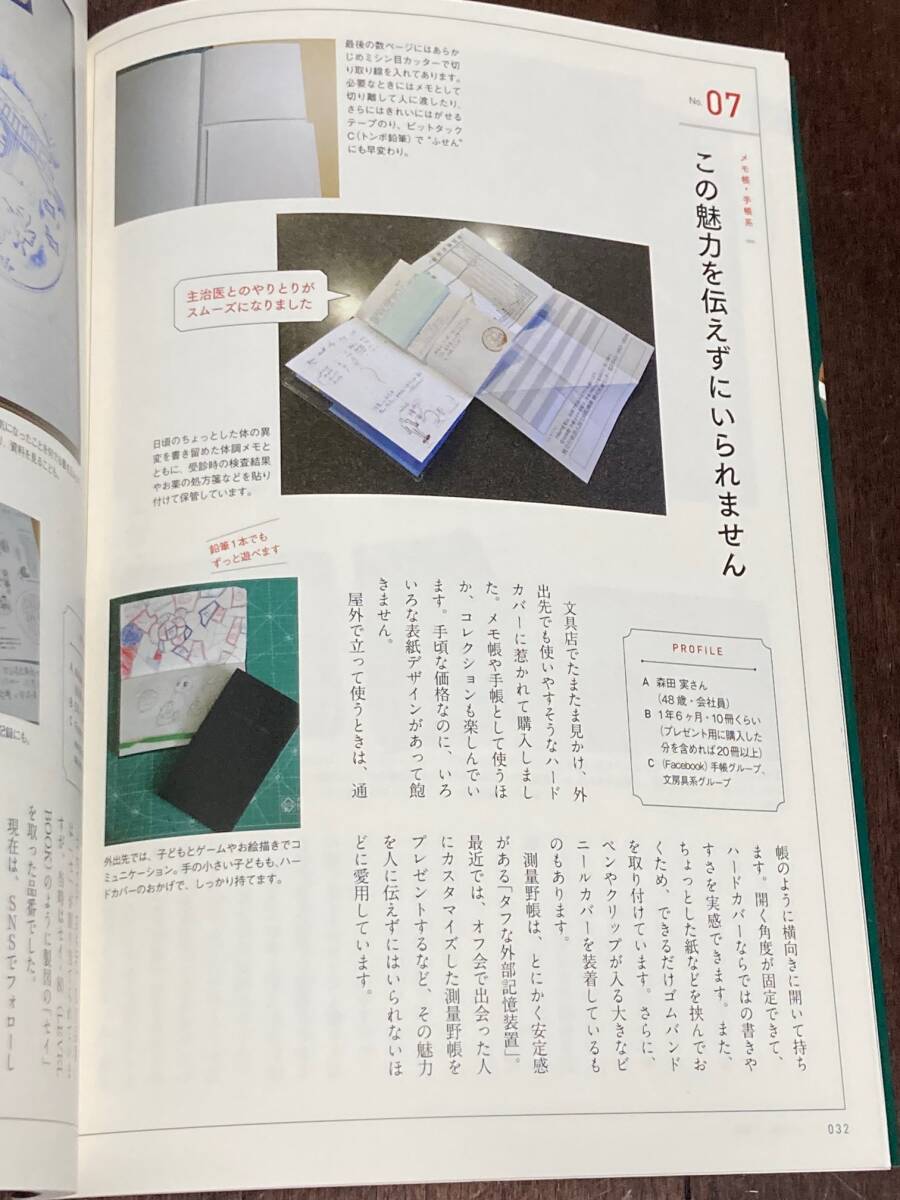 No. 07
メモ帳・手帳系
この魅力を伝えずにいられません
最後の数ページにはあらか
じめミシン目カッターで切
り取り線を入れてあります。
必要なときにはメモとして
切り離して人に渡したり、
さらにはきれいにはがせる
テープのり、ピットタック
C(トンボ鉛筆)で“ふせん”
にも早変わり。
主治医とのやりとりが
スムーズになりました
日頃のちょっとした体の異
変を書き留めた体調メモと
ともに、受診時の検査結果
やお薬の処方箋などを貼り
付けて保管しています。
鉛筆1本でも
ずっと遊べます
外出先では、子どもとゲームやお絵描きでコ
ミュニケーション。手の小さい子どもも、ハー
ドカバーのおかげで、しっかり持てます。
PROFILE
A 森田 実さん
(48歳・会社員)
B 1年6ヶ月・10冊くらい
(プレゼント用に購入した
分を含めれば20冊以上)
C (Facebook)手帳グループ、
文房具系グループ
文具店でたまたま見かけ、外
出先でも使いやすそうなハード
カバーに惹かれて購入しまし
た。メモ帳や手帳として使うほ
か、コレクションも楽しんでい
ます。手頃な価格なのに、いろ
いろな表紙デザインがあって飽
きません。
屋外で立って使うときは、通
帳のように横向きに開いて持ち
ます。開く角度が固定できて、
ハードカバーならではの書きや
すさを実感できます。また、
ちょっとした紙などを挟んでお
くため、できるだけゴムバンド
を取り付けています。さらに、
ペンやクリップが入る大きなビ
ニールカバーを装着しているも
のもあります。
測量野帳は、とにかく安定感
がある「タフな外部記憶装置」。
最近では、オフ会で出会った人
にカスタマイズした測量野帳を
プレゼントするなど、その魅力
を人に伝えずにはいられないほ
どに愛用しています。
032
、資料を見ることも。
記録にも。
BOOK)のように製図の「セイ」
を取った品番でした。
現在は、SNSでフォローし